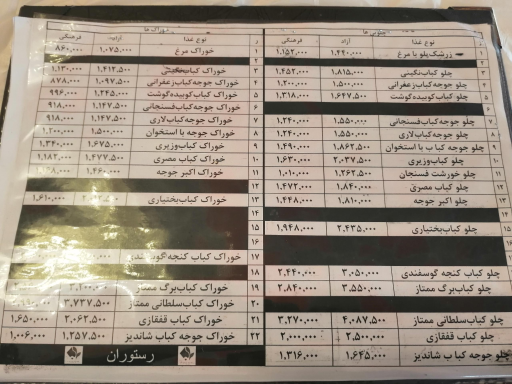 نوع غذا آزاد فرهنگی
۱ زرشک پلو با مرغ ۱،۴۴۰،۰۰۰ ۱،۱۵۲،۰۰۰
۲
۳ چلو کباب نگینی ۱،۸۱۵،۰۰۰ ۱،۴۵۲،۰۰۰
۴ چلو جوجه کباب زعفرانی ۱،۵۰۰،۰۰۰ ۱،۲۰۰،۰۰۰
۵ چلو کباب کوبیده گوشت ۱،۶۴۷،۵۰۰ ۱،۳۱۸،۰۰۰
۶
۷ چلو جوجه کباب فسنجانی ۱،۵۵۰،۰۰۰ ۱،۲۴۰،۰۰۰
۸ چلو جوجه کباب لاری ۱،۵۵۰،۰۰۰ ۱،۲۴۰،۰۰۰
۹ چلو جوجه کباب با استخوان ۱،۸۶۲،۵۰۰ ۱،۴۹۰،۰۰۰
۱۰ چلو کباب وزیری ۲،۰۳۷،۵۰۰ ۱،۶۳۰،۰۰۰
۱۱ چلو خورشت فسنجان ۱،۲۶۲،۵۰۰ ۱،۰۱۰،۰۰۰
۱۲ چلو کباب مصری ۱،۸۴۰،۰۰۰ ۱،۴۷۲،۰۰۰
۱۳ چلو اکبر جوجه ۱،۸۱۰،۰۰۰ ۱،۴۴۸،۰۰۰
۱۴
۱۵ چلو کباب بختیاری ۲،۴۳۵،۰۰۰ ۱،۹۴۸،۰۰۰
۱۶
چلو کباب کنجه گوسفندی ۳،۰۵۰،۰۰۰ ۲،۴۴۰،۰۰۰
چلو کباب برگ ممتاز ۳،۵۵۰،۰۰۰ ۲،۸۴۰،۰۰۰
چلو کباب سلطانی ممتاز ۴،۰۸۷،۵۰۰ ۳،۲۷۰،۰۰۰
چلو کباب قفقازی ۲،۵۰۰،۰۰۰ ۲،۰۰۰،۰۰۰
چلو جوجه کباب شاندیز ۱،۶۴۵،۰۰۰ ۱،۳۱۶،۰۰۰
ر نوع غذا فرهنگی
۱ خوراک مرغ ۱،۰۷۵،۰۰۰ ۸۶۰،۰۰۰
۲
۳ خوراک کباب نگینی ۱،۴۱۲،۵۰۰ ۱،۱۳۰،۰۰۰
۴ خوراک جوجه کباب زعفرانی ۱،۰۹۷،۵۰۰ ۸۷۸،۰۰۰
۵ خوراک کباب کوبیده گوشت ۱،۲۴۵،۰۰۰ ۹۹۶،۰۰۰
۶ خوراک جوجه کباب فسنجانی ۱،۱۴۷،۵۰۰ ۹۱۸،۰۰۰
۷ خوراک جوجه کباب لاری ۱،۱۴۷،۵۰۰ ۹۱۸،۰۰۰
۸ خوراک جوجه با استخوان ۱،۵۰۰،۰۰۰ ۱،۲۰۰،۰۰۰
۹ خوراک کباب وزیری ۱،۶۷۵،۰۰۰ ۱،۳۴۰،۰۰۰
۱۰ خوراک کباب مصری ۱،۴۷۷،۵۰۰ ۱،۱۸۲،۰۰۰
۱۱ خوراک اکبر جوجه ۱،۴۶۰،۰۰۰
۱۲
۱۳ خوراک کباب بختیاری ۱،۶۱۰،۰۰۰
۱۴
۱۵
۱۶
۱۷ خوراک کباب کنجه گوسفندی
۱۸
۱۹ خوراک کباب برگ ممتاز
۲۰ خوراک کباب سلطانی ممتاز ۳،۷۳۷،۵۰۰
۲۱ خوراک کباب قفقازی ۲،۰۶۲،۵۰۰ ۱،۶۵۰،۰۰۰
۲۲ خوراک جوجه کباب شاندیز ۱،۲۵۷،۵۰۰ ۱،۰۰۶،۰۰۰
رستوران